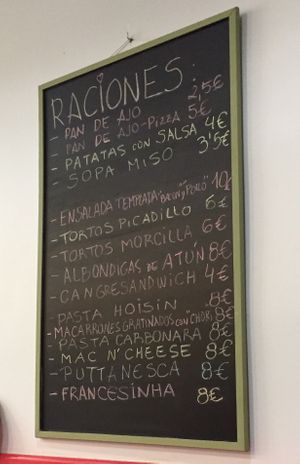 RACIONES:
- PAN DE AJO 2,5€
- PAN DE AJO-PIZZA 5€
- PATATAS CON SALSA 4€
- SOPA MISO 3'5€
- ENSALADA TEMPLADA "BACON Y POLLO" 10€
- TORTOS PICADILLO 6€
- TORTOS MORCILLA 6€
- ALBONDIGAS DE ATUN 8€
- CANGRESANDWICH 4€
- PASTA HOISIN 8€
- MACARRONES GRATINADOS CON "CHORI" 8€
- PASTA CARBONARA 8€
- MAC N' CHEESE 8€
- PUTTANESCA 8€
- FRANCESINHA 8€